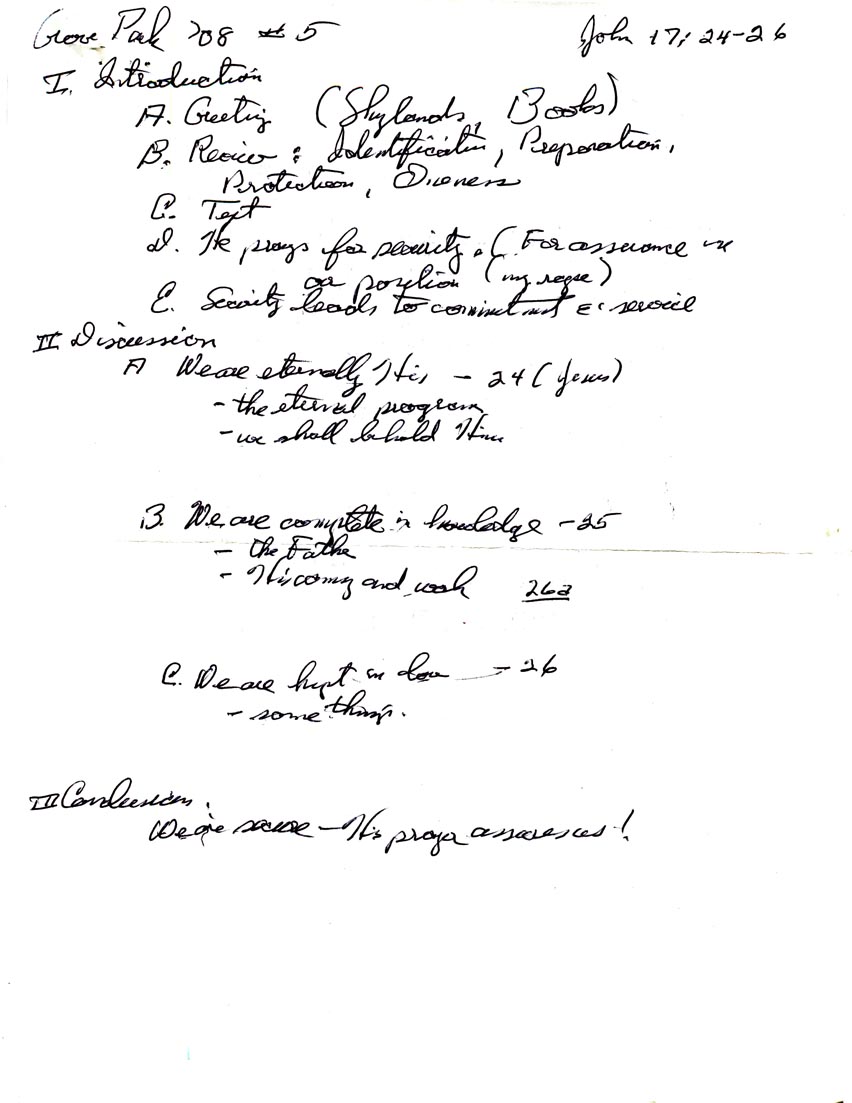 Grove Park '08 #5 John 17:24-26
I. Introduction
A. Greeting (Skylands, Books)
B. Review: Identification, Preparation,
Protection, Oneness
C. Text
D. He prays for security. (For assurance in
our position (my
E. Security leads to commitment & service
II Discussion
A We are eternally His - 24 (
- the eternal program
- we shall behold Him
B. We are complete in knowledge - 25
- the Father
- His coming and work 26a
C. We are kept in love - 26
- some things.
III Conclusion.
We are secure - His prayer assures us!